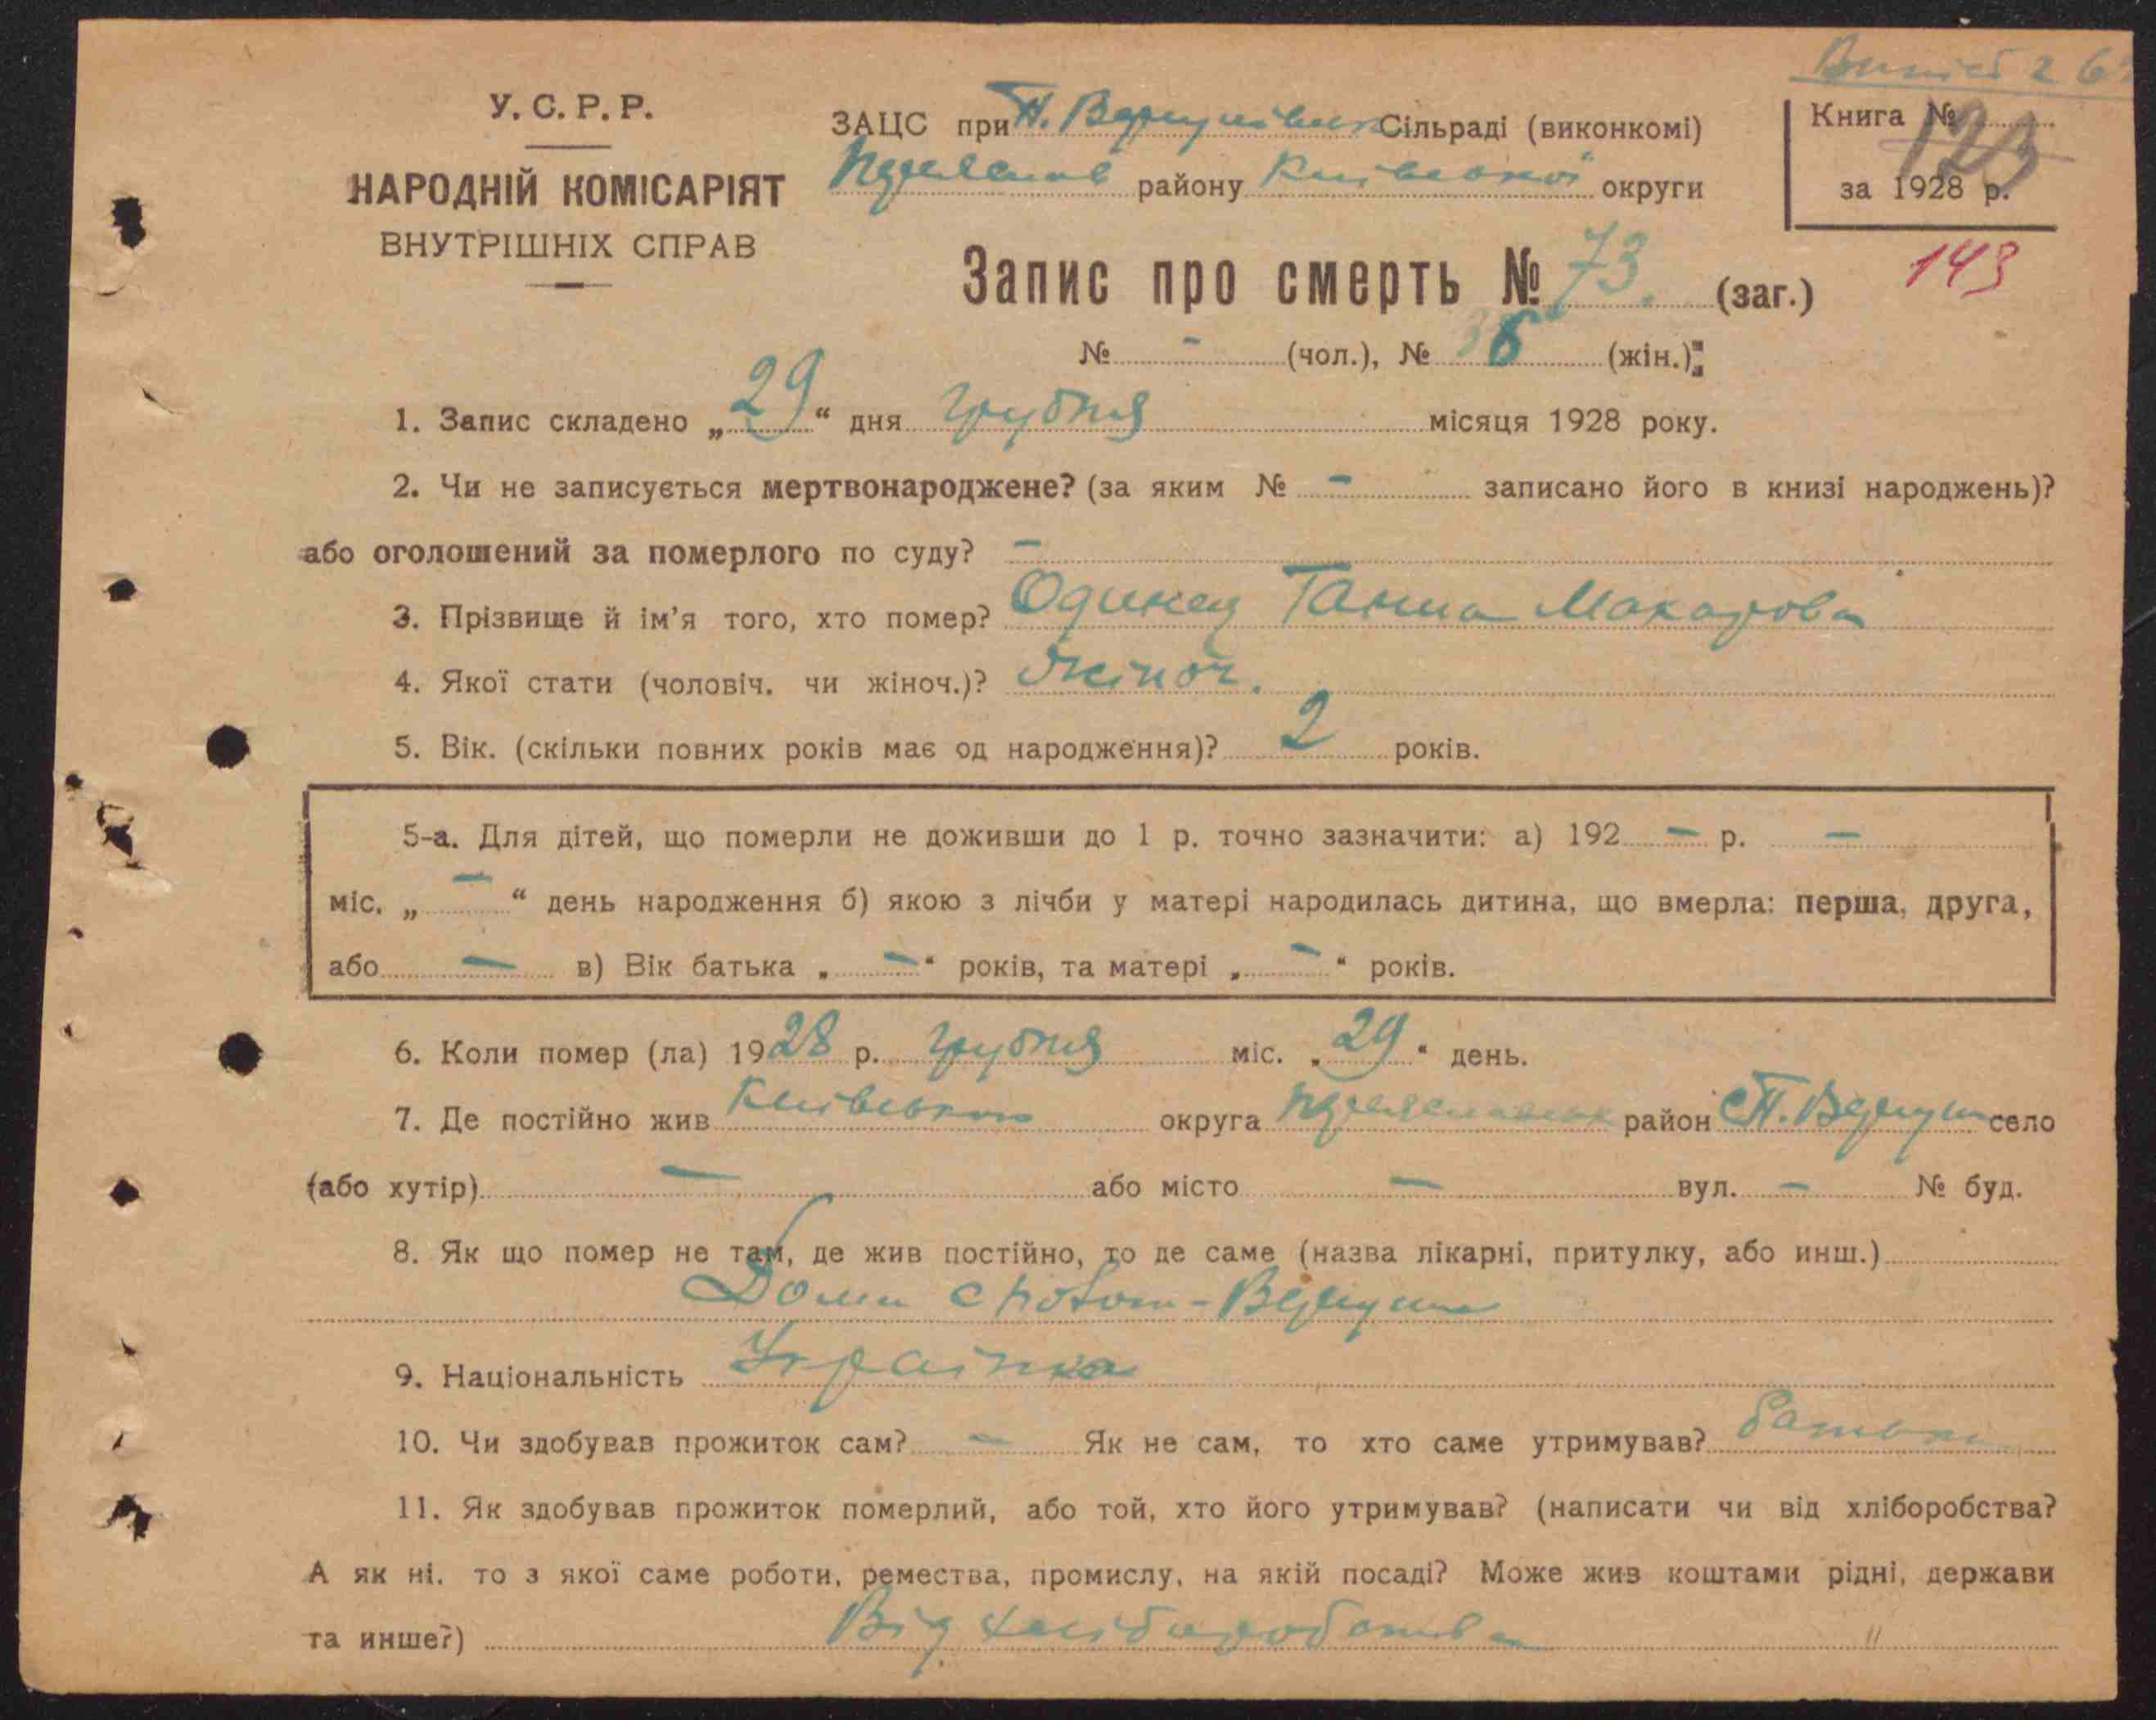 2 6
У. С. Р. Р.
НАРОДНІЙ КОМІСАРІЯТ
ВНУТРІШНІХ СПРАВ
ЗАЦС при Сільраді (виконкомі)
району Київської округи
Книга № 123
за 1928 р.
143
Запис про смерть № 73. (заг.)
№ - (чол.), № 36 (жін.)
1. Запис складено „29“ дня грудня місяця 1928 року.
2. Чи не записується мертвонароджене? (за яким № - записано його в книзі народжень)?
або оголошений за померлого по суду? -
3. Прізвище й ім'я того, хто помер? Одинец Ганна Макарова
4. Якої стати (чоловіч. чи жіноч.)? Жіноч.
5. Вік. (скільки повних років має од народження)? 2 років.
5-а. Для дітей, що померли не доживши до 1 р. точно зазначити: а) 192 - р. -
міс. „ - “ день народження б) якою з лічби у матері народилась дитина, що вмерла: перша, друга,
або - в) Вік батька „ - “ років, та матері „ - “ років.
6. Коли помер (ла) 1928 р. грудня міс. „29“ день.
7. Де постійно жив Київська округа район село
(або хутір) - або місто - вул. - № буд.
8. Як що помер не там, де жив постійно, то де саме (назва лікарні, притулку, або инш.)
Дома
9. Національність Українка
10. Чи здобував прожиток сам? - Як не сам, то хто саме утримував? батьки
11. Як здобував прожиток померлий, або той, хто його утримував? (написати чи від хліборобства?
А як ні, то з якої саме роботи, ремества, промислу, на якій посаді? Може жив коштами рідні, держави
та инше?) Від хліборобства